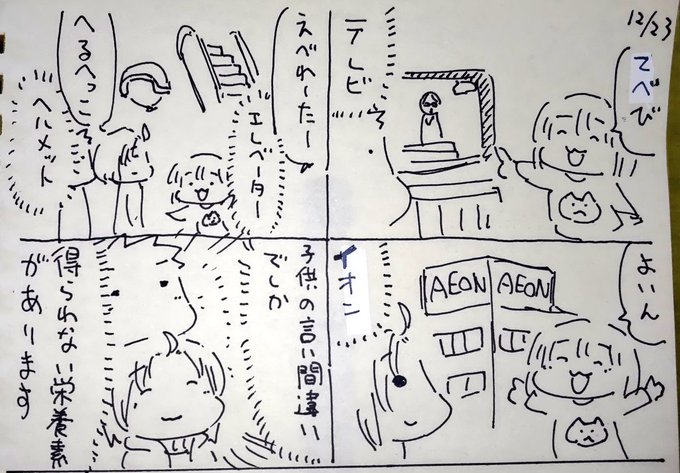 12/23
てべび
テレビ
えべれーたー
エレベーター
へるへっこ
ヘルメット
よいん
AEON AEON
イオン
子供の言い間違い
でしか
得られない栄養素
があります